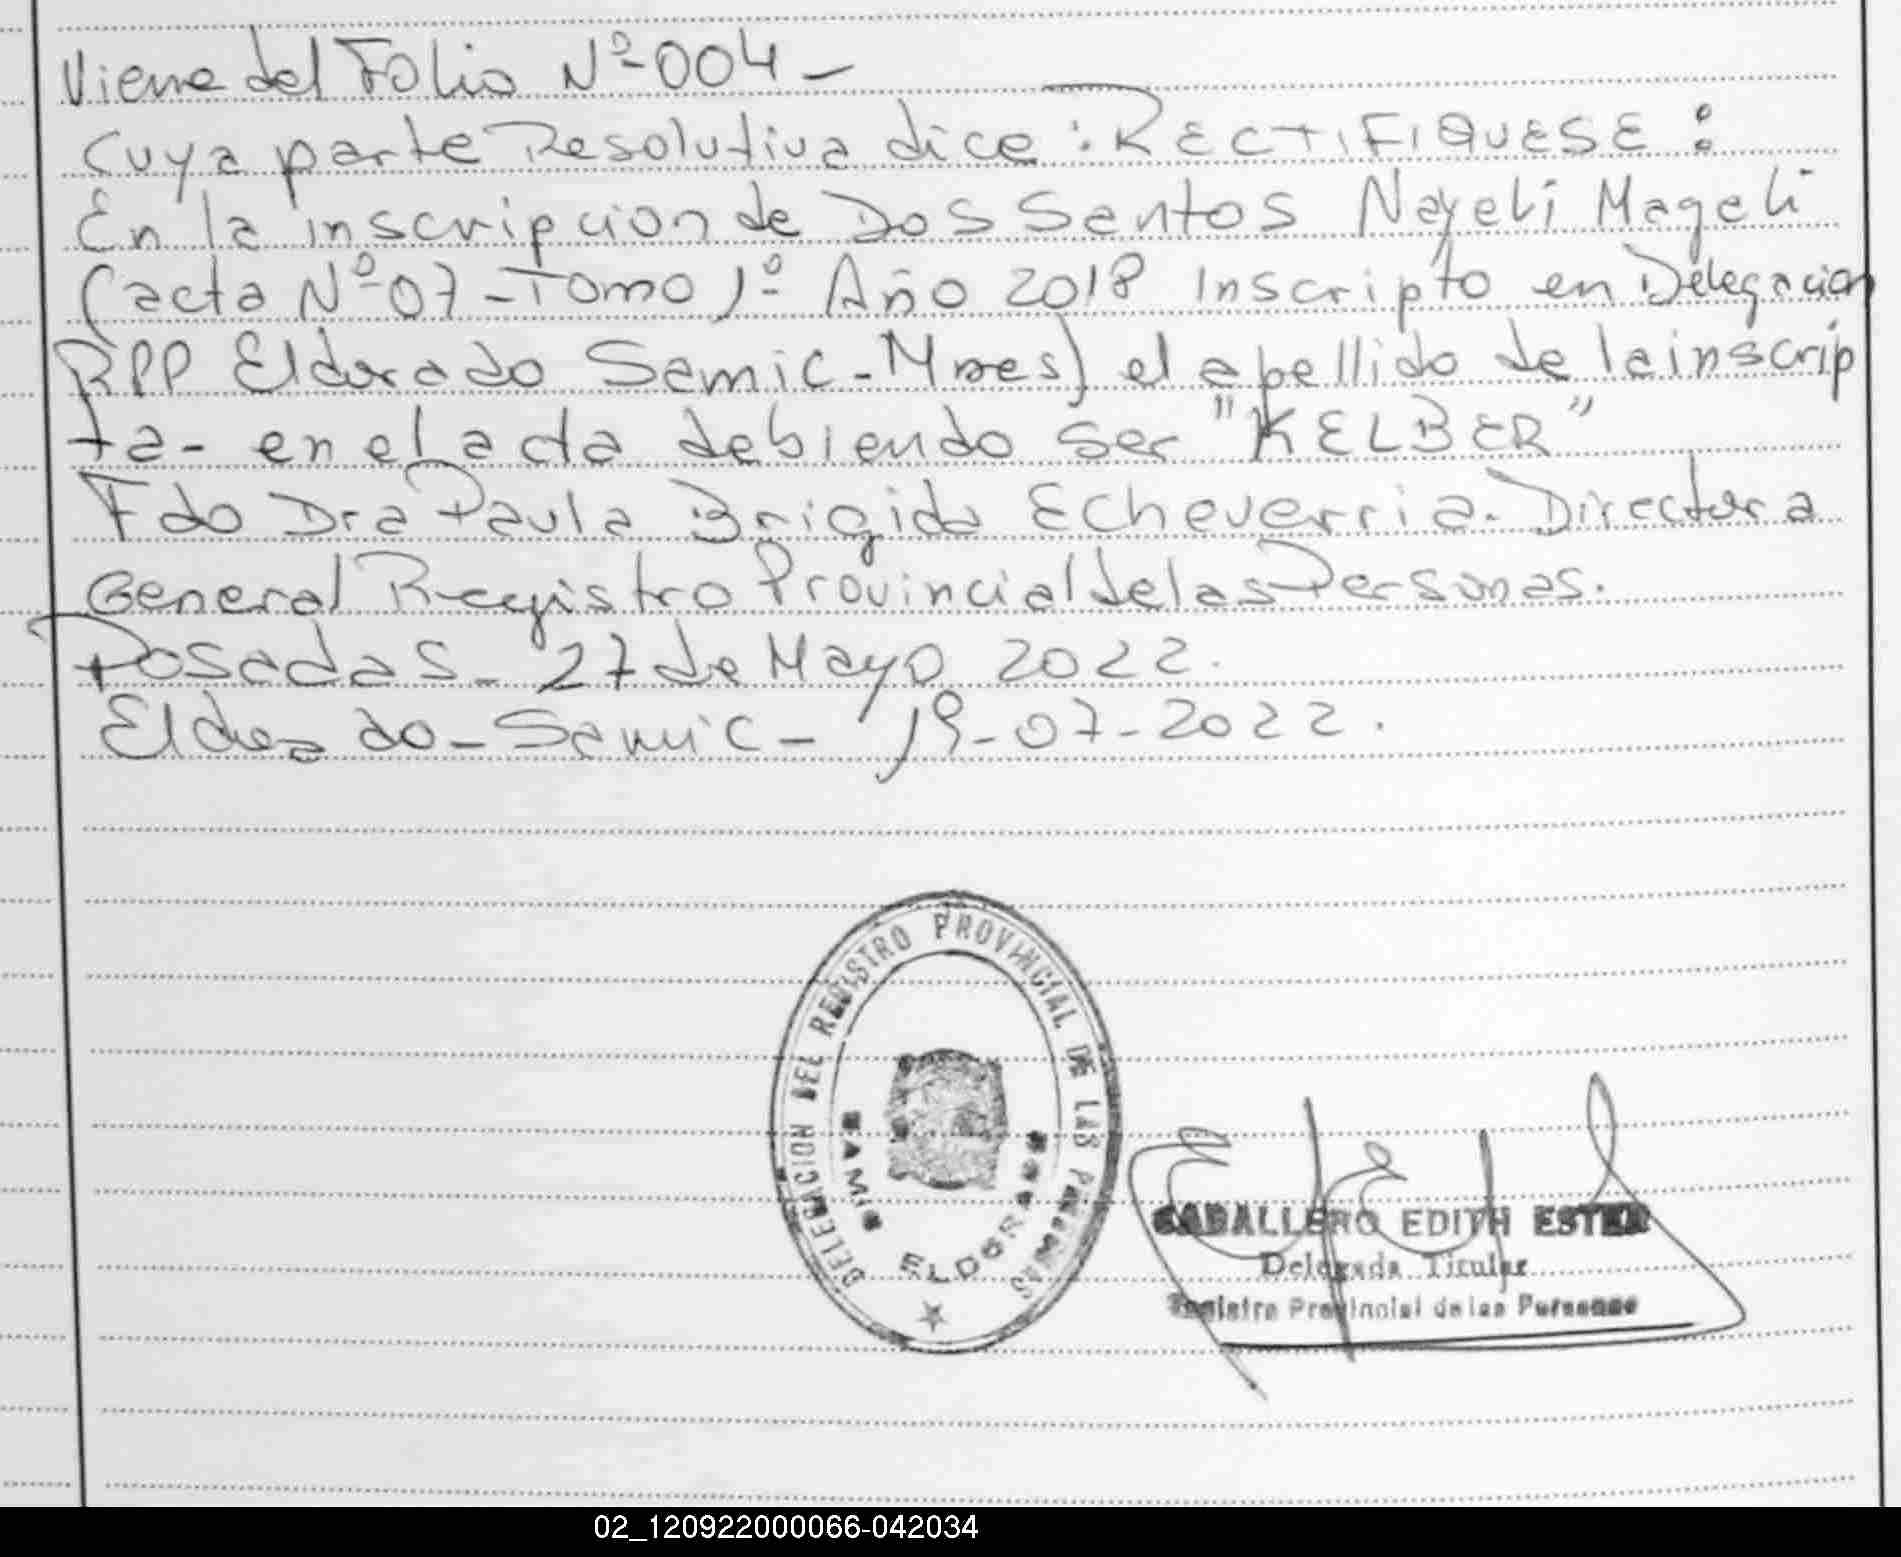 Viene del Folio Nº 004 -
Cuya parte Resolutiva dice: RECTIFIQUESE:
En la inscripcion de Dos Santos Nayeli Mageli
(acta Nº 07 - Tomo 1º Año 2018 Inscripto en Delegacion
RPP Eldorado Samic - Mnes) el apellido de la inscrip
ta - en el acta debiendo ser "KELBER"
Fdo Dra Paula Brigida Echeverria. Directora
General Registro Provincial de las Personas.
Posadas - 27 de Mayo 2022.
Eldorado - Samic - 19-07-2022.
DELEGACION DEL REGISTRO PROVINCIAL DE LAS PERSONAS
SAMIC ELDORADO
CABALLERO EDITH ESTER
Delegada Titular
Registro Provincial de las Personas
02_120922000066-042034